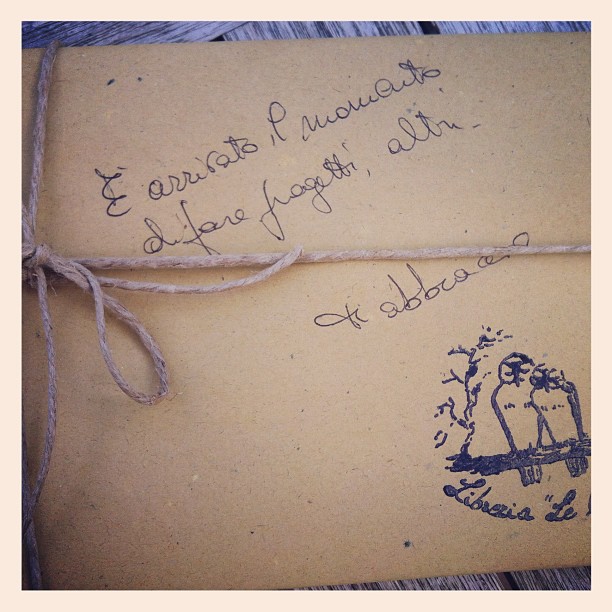 È arrivato il momento
di fare progetti, altri.
ti abbraccio
Libreria "Le